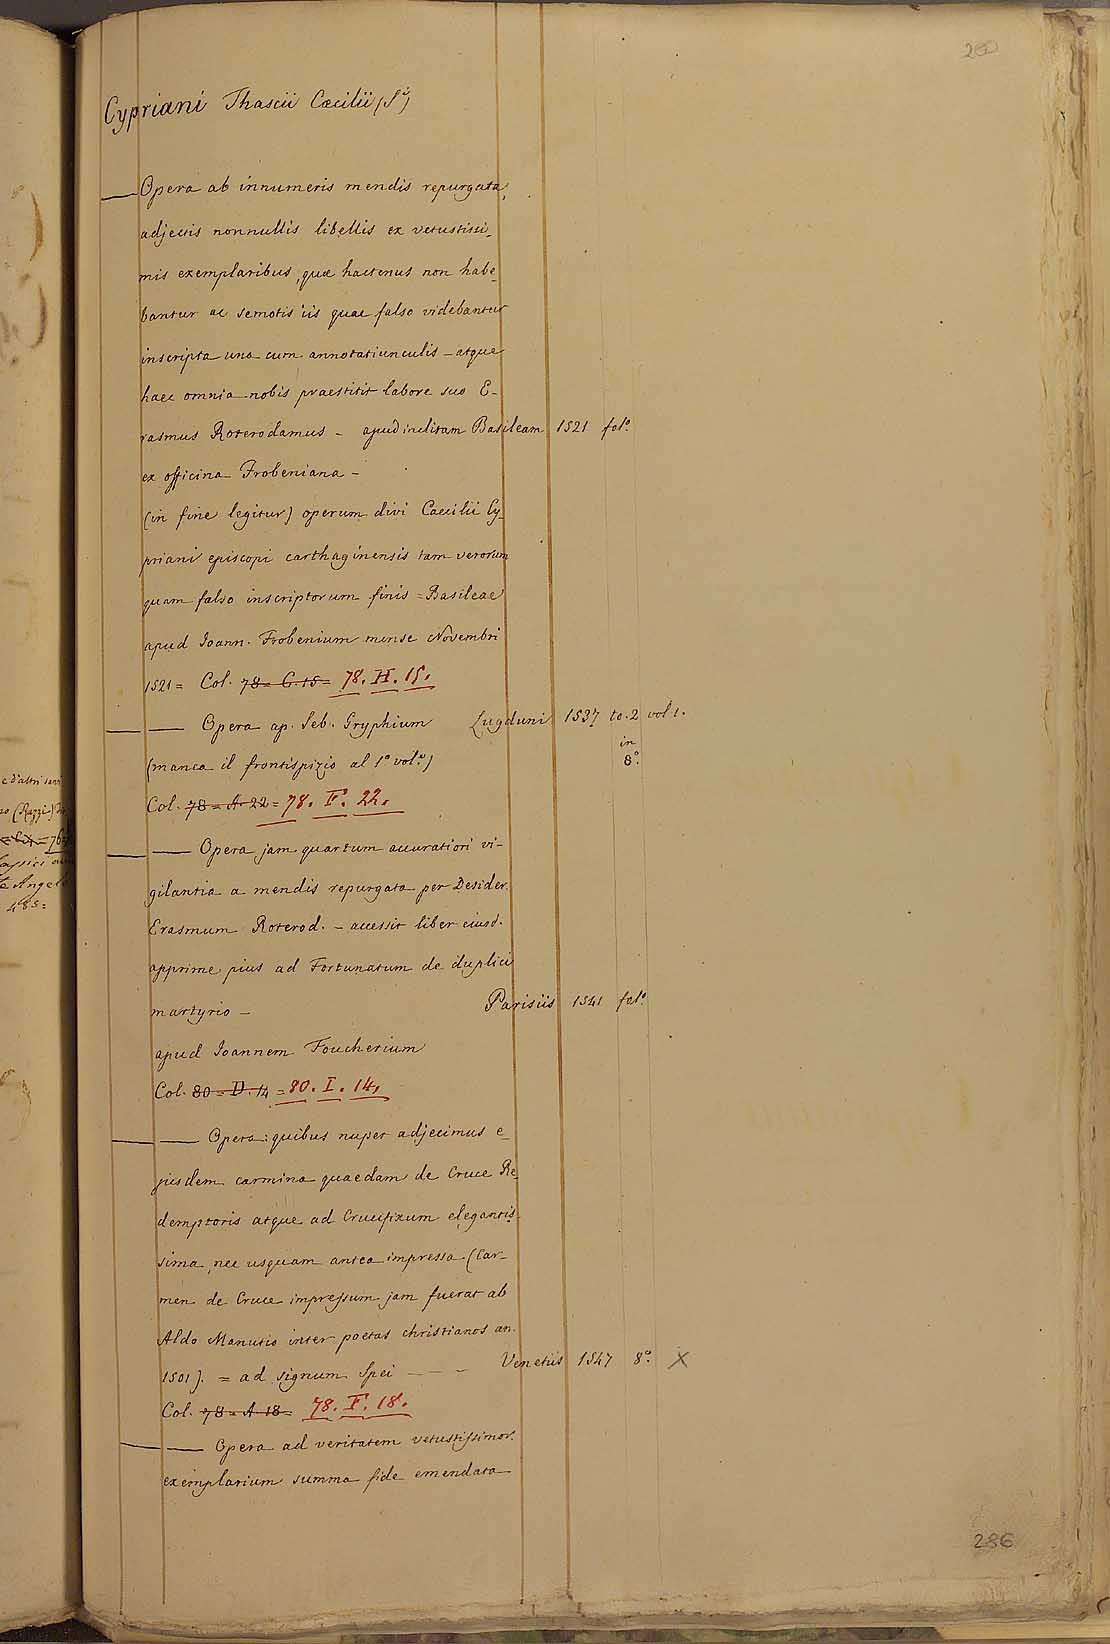 Cypriani Thascii Cæcilii (Sⁱ)
Opera ab innumeris mendis repurgata,
adjectis nonnullis libellis ex vetustissi-
mis exemplaribus, quæ hactenus non habe-
bantur ac semotis iis quae falso videbantur
inscripta una cum annotatiunculis - atque
haec omnia nobis praestitit labore suo E-
rasmus Roterodamus - apud inclitam Basileam 1521 folº.
ex officina Frobeniana -
(in fine legitur) operum divi Caecilii Cy-
priani episcopi carthaginensis tam verorum
quam falso inscriptorum finis = Basileae
apud Ioann. Frobenium mense Novembri
1521 = Col. 78 = C. 15 = 78. H. 15.
Opera ap. Seb. Gryphium Lugduni 1537 to. 2 vol 1.
in
8º.
(manca il frontispizio al 1º volº.)
Col. 78 = A. 22 = 78. F. 22.
Opera jam quartum accuratiori vi-
gilantia a mendis repurgata per Desider.
Erasmum Roterod. - accessit liber eiusd.
apprime pius ad Fortunatum de duplici
martyrio - Parisiis 1541 folº.
apud Ioannem Foucherium
Col. 80 = D. 14 = 80. I. 14.
Opera: quibus nuper adjecimus e-
jusdem carmina quaedam de Cruce Re-
demptoris atque ad Crucifixum elegantis-
sima, nec usquam antea impressa (Car-
men de Cruce impressum jam fuerat ab
Aldo Manutio inter poetas christianos an.
1501). = ad signum Spei - - - Venetiis 1547 8º. X
Col. 78 = A. 18 = 78. F. 18.
Opera ad veritatem vetustissimor.
exemplarium summa fide emendata
286